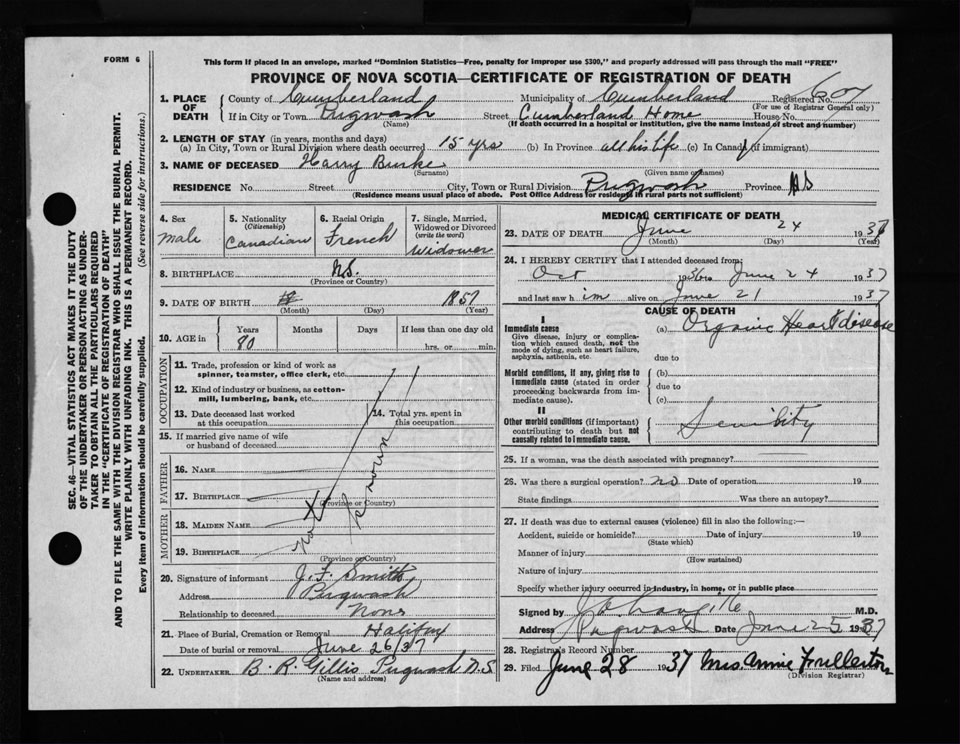 FORM 6
This form if placed in an envelope, marked "Dominion Statistics—Free, penalty for improper use $300," and properly addressed will pass through the mail "FREE"
PROVINCE OF NOVA SCOTIA—CERTIFICATE OF REGISTRATION OF DEATH
1. PLACE OF DEATH County of Cumberland Municipality of Cumberland Registered No. 607
(For use of Registrar General only)
If in City or Town Pugwash Street Cumberland Home House No.
(Name) (If death occurred in a hospital or institution, give the name instead of street and number)
2. LENGTH OF STAY (in years, months and days)
(a) In City, Town or Rural Division where death occurred 15 yrs (b) In Province all his life (c) In Canada (if immigrant)
3. NAME OF DECEASED Harry Burke
(Surname) (Given name or names)
RESIDENCE No. Street City, Town or Rural Division Pugwash Province NS
(Residence means usual place of abode. Post Office Address for residents in rural parts not sufficient)
4. Sex
Male
5. Nationality
(Citizenship)
Canadian
6. Racial Origin
French
7. Single, Married, Widowed or Divorced
(write the word)
Widower
8. BIRTHPLACE N.S.
(Province or Country)
9. DATE OF BIRTH 1857
(Month) (Day) (Year)
10. AGE in Years Months Days If less than one day old
80 hrs. or min.
OCCUPATION
11. Trade, profession or kind of work as
spinner, teamster, office clerk, etc.
12. Kind of industry or business, as cotton-
mill, lumbering, bank, etc.
13. Date deceased last worked
at this occupation
14. Total yrs. spent in
this occupation
15. If married give name of wife
or husband of deceased
FATHER
16. NAME
17. BIRTHPLACE
(Province or Country)
MOTHER
18. MAIDEN NAME
19. BIRTHPLACE
(Province or Country)
not known
20. Signature of informant J. F. Smith
Address Pugwash
Relationship to deceased None
21. Place of Burial, Cremation or Removal Halifax
Date of burial or removal June 26/37
22. UNDERTAKER B. R. Gillis Pugwash N.S
(Name and address)
MEDICAL CERTIFICATE OF DEATH
23. DATE OF DEATH June 24 1937
(Month) (Day) (Year)
24. I HEREBY CERTIFY that I attended deceased from
Oct 1936 to June 24 1937
and last saw him alive on June 21 1937
CAUSE OF DEATH
I
Immediate cause
Give disease, injury or complica-
tion which caused death, not the
mode of dying, such as heart failure,
asphyxia, asthenia, etc.
(a) Organic Heart disease
due to
Morbid conditions, if any, giving rise to
immediate cause (stated in order
proceeding backwards from im-
mediate cause).
(b)
due to
(c)
II
Other morbid conditions (if important)
contributing to death but not
causally related to immediate cause.
Senility
25. If a woman, was the death associated with pregnancy?
26. Was there a surgical operation? no Date of operation 19
State findings Was there an autopsy?
27. If death was due to external causes (violence) fill in also the following:—
Accident, suicide or homicide? Date of injury 19
(State which)
Manner of injury
(How sustained)
Nature of injury
Specify whether injury occurred in industry, in home, or in public place
Signed by M.D.
Address Pugwash Date June 25 1937
28. Registrar's Record Number
29. Filed June 28 1937 Mrs Annie Fullerton
(Division Registrar)
SEC. 46—VITAL STATISTICS ACT MAKES IT THE DUTY
OF THE UNDERTAKER OR PERSON ACTING AS UNDER-
TAKER TO OBTAIN ALL THE PARTICULARS REQUIRED
IN THE "CERTIFICATE OF REGISTRATION OF DEATH"
AND TO FILE THE SAME WITH THE DIVISION REGISTRAR WHO SHALL ISSUE THE BURIAL PERMIT.
WRITE PLAINLY WITH UNFADING INK. THIS IS A PERMANENT RECORD.
Every item of information should be carefully supplied. (See reverse side for instructions.)